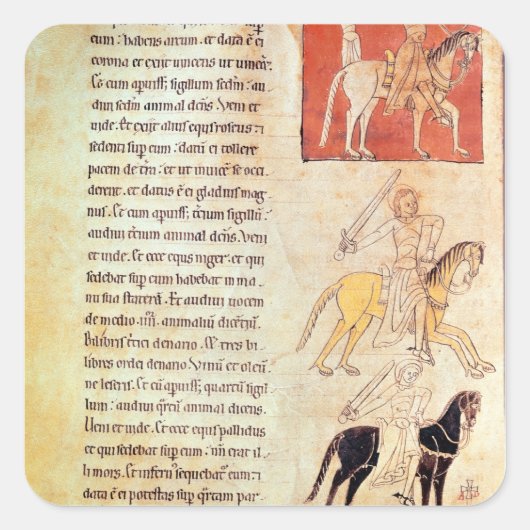 cum: habens arcum. et data ē ei
corona et exiit uincens ut uincēt.
Et cum apuiss; sigillum sedm̄: au
diui sedm̄ animal dēns. Veni et
uide. Et exiit alius equs roseus: ⁊
sedenti sup̄ cum: datū ei tollere
pacem de t̄ra: et ut inuicē se occi
derent. et datus ē ei gladius mag
nus. Et cum apuiss; t̄cium sigillū:
audiui t̄cium animal dēns. Veni
et uide. Et ecce equs niger: et qui
sedebat sup̄ eum habebat in ma
nu sua staterā. Et audiui uocem
de medio .iiii. animaliū dicētiū.
Bilibris t̄tici denario. Et tres bi
libres ordei denario. Vinū et oleū
ne leseris. Et cū apuiss; quartū sigil
lum: audiui q̄rtū animal dicens.
Veni et uide. Et ecce equs pallidus:
et qui sedebat sup̄ eum: nm̄ erat il
li mors. Et infern' sequebat' eum: ⁊
data ē ei potestas sup̄ q̄rtam par